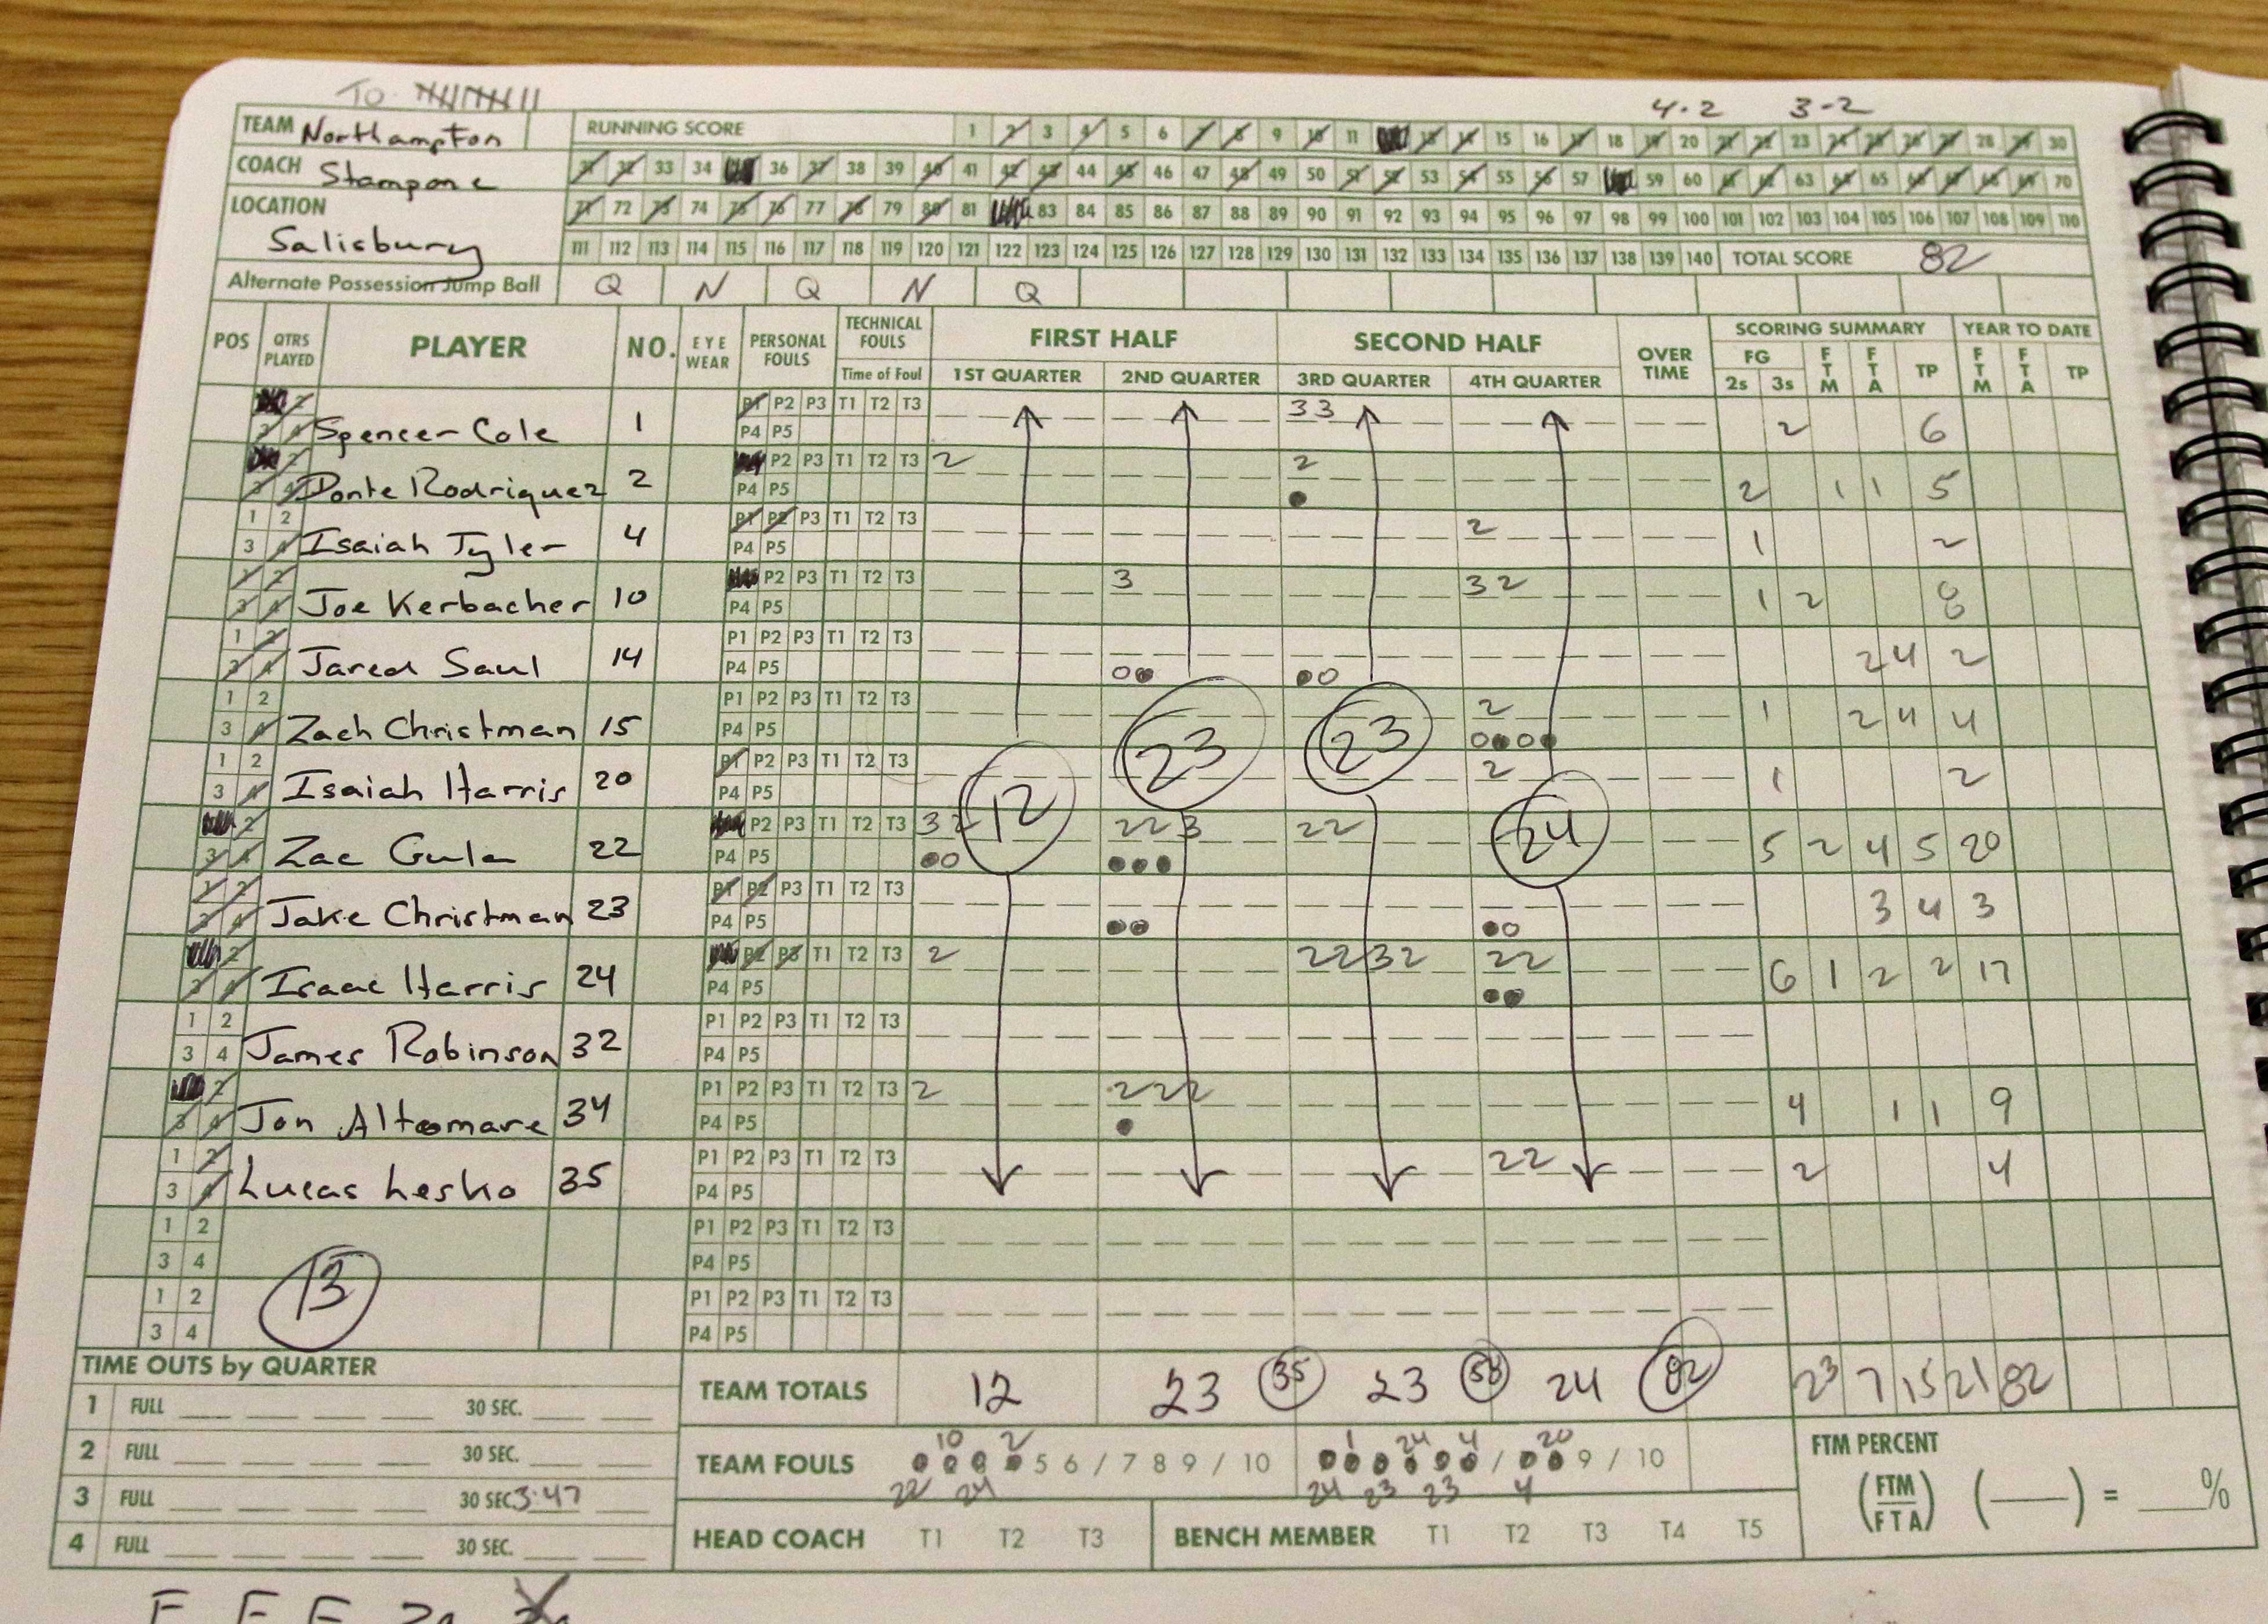 TO
4-2 3-2
TEAM Northampton RUNNING SCORE 1 2 3 4 5 6 7 8 9 10 11 13 14 15 16 17 18 19 20 21 22 23 24 25 26 27 28 29 30
COACH Stampone 31 32 33 34 36 37 38 39 40 41 42 43 44 45 46 47 48 49 50 51 52 53 54 55 56 57 59 60 61 62 63 64 65 66 67 68 69 70
LOCATION 71 72 73 74 75 76 77 78 79 80 81 83 84 85 86 87 88 89 90 91 92 93 94 95 96 97 98 99 100 101 102 103 104 105 106 107 108 109 110
Salisbury 111 112 113 114 115 116 117 118 119 120 121 122 123 124 125 126 127 128 129 130 131 132 133 134 135 136 137 138 139 140 TOTAL SCORE 82
Alternate Possession Jump Ball Q N Q N Q
POS QTRS PLAYED PLAYER NO. EYE WEAR PERSONAL FOULS TECHNICAL FOULS Time of Foul FIRST HALF SECOND HALF OVER TIME SCORING SUMMARY YEAR TO DATE
1ST QUARTER 2ND QUARTER 3RD QUARTER 4TH QUARTER FG 2s 3s FTM FTA TP FTM FTA TP
2 P1 P2 P3 T1 T2 T3 33
3 4 Spencer Cole 1 P4 P5 2 6
2 P2 P3 T1 T2 T3 2 2
3 4 Donte Rodriquez 2 P4 P5 2 1 1 5
1 2 P1 P2 P3 T1 T2 T3 2
3 4 Isaiah Tyler 4 P4 P5 1 2
1 2 P2 P3 T1 T2 T3 3 32
3 4 Joe Kerbacher 10 P4 P5 1 2 8
1 2 P1 P2 P3 T1 T2 T3
3 4 Jared Saul 14 P4 P5 2 4 2
1 2 P1 P2 P3 T1 T2 T3 2
3 4 Zach Christman 15 P4 P5 23 23 1 2 4 4
1 2 P1 P2 P3 T1 T2 T3 2
3 4 Isaiah Harris 20 P4 P5 12 1 2
2 P2 P3 T1 T2 T3 32 223 22
3 4 Zac Gula 22 P4 P5 24 5 2 4 5 20
1 2 P1 P2 P3 T1 T2 T3
3 4 Jake Christman 23 P4 P5 3 4 3
2 P2 P3 T1 T2 T3 2 2232 22
3 4 Isaac Harris 24 P4 P5 6 1 2 2 17
1 2 P1 P2 P3 T1 T2 T3
3 4 James Robinson 32 P4 P5
2 P1 P2 P3 T1 T2 T3 2 222
3 4 Jon Altomare 34 P4 P5 4 1 1 9
1 2 P1 P2 P3 T1 T2 T3 22
3 4 Lucas Lesko 35 P4 P5 2 4
1 2 P1 P2 P3 T1 T2 T3
3 4 P4 P5
13
1 2 P1 P2 P3 T1 T2 T3
3 4 P4 P5
TIME OUTS by QUARTER
1 FULL 30 SEC.
2 FULL 30 SEC.
3 FULL 30 SEC. 3:47
4 FULL 30 SEC.
TEAM TOTALS 12 23 35 23 58 24 82 23 7 15 21 82
10 2 1 24 4 20
TEAM FOULS 5 6 / 7 8 9 / 10 / 9 / 10
22 24 24 23 23 4
HEAD COACH T1 T2 T3 BENCH MEMBER T1 T2 T3 T4 T5
FTM PERCENT
(FTM/FTA) ( ) = %